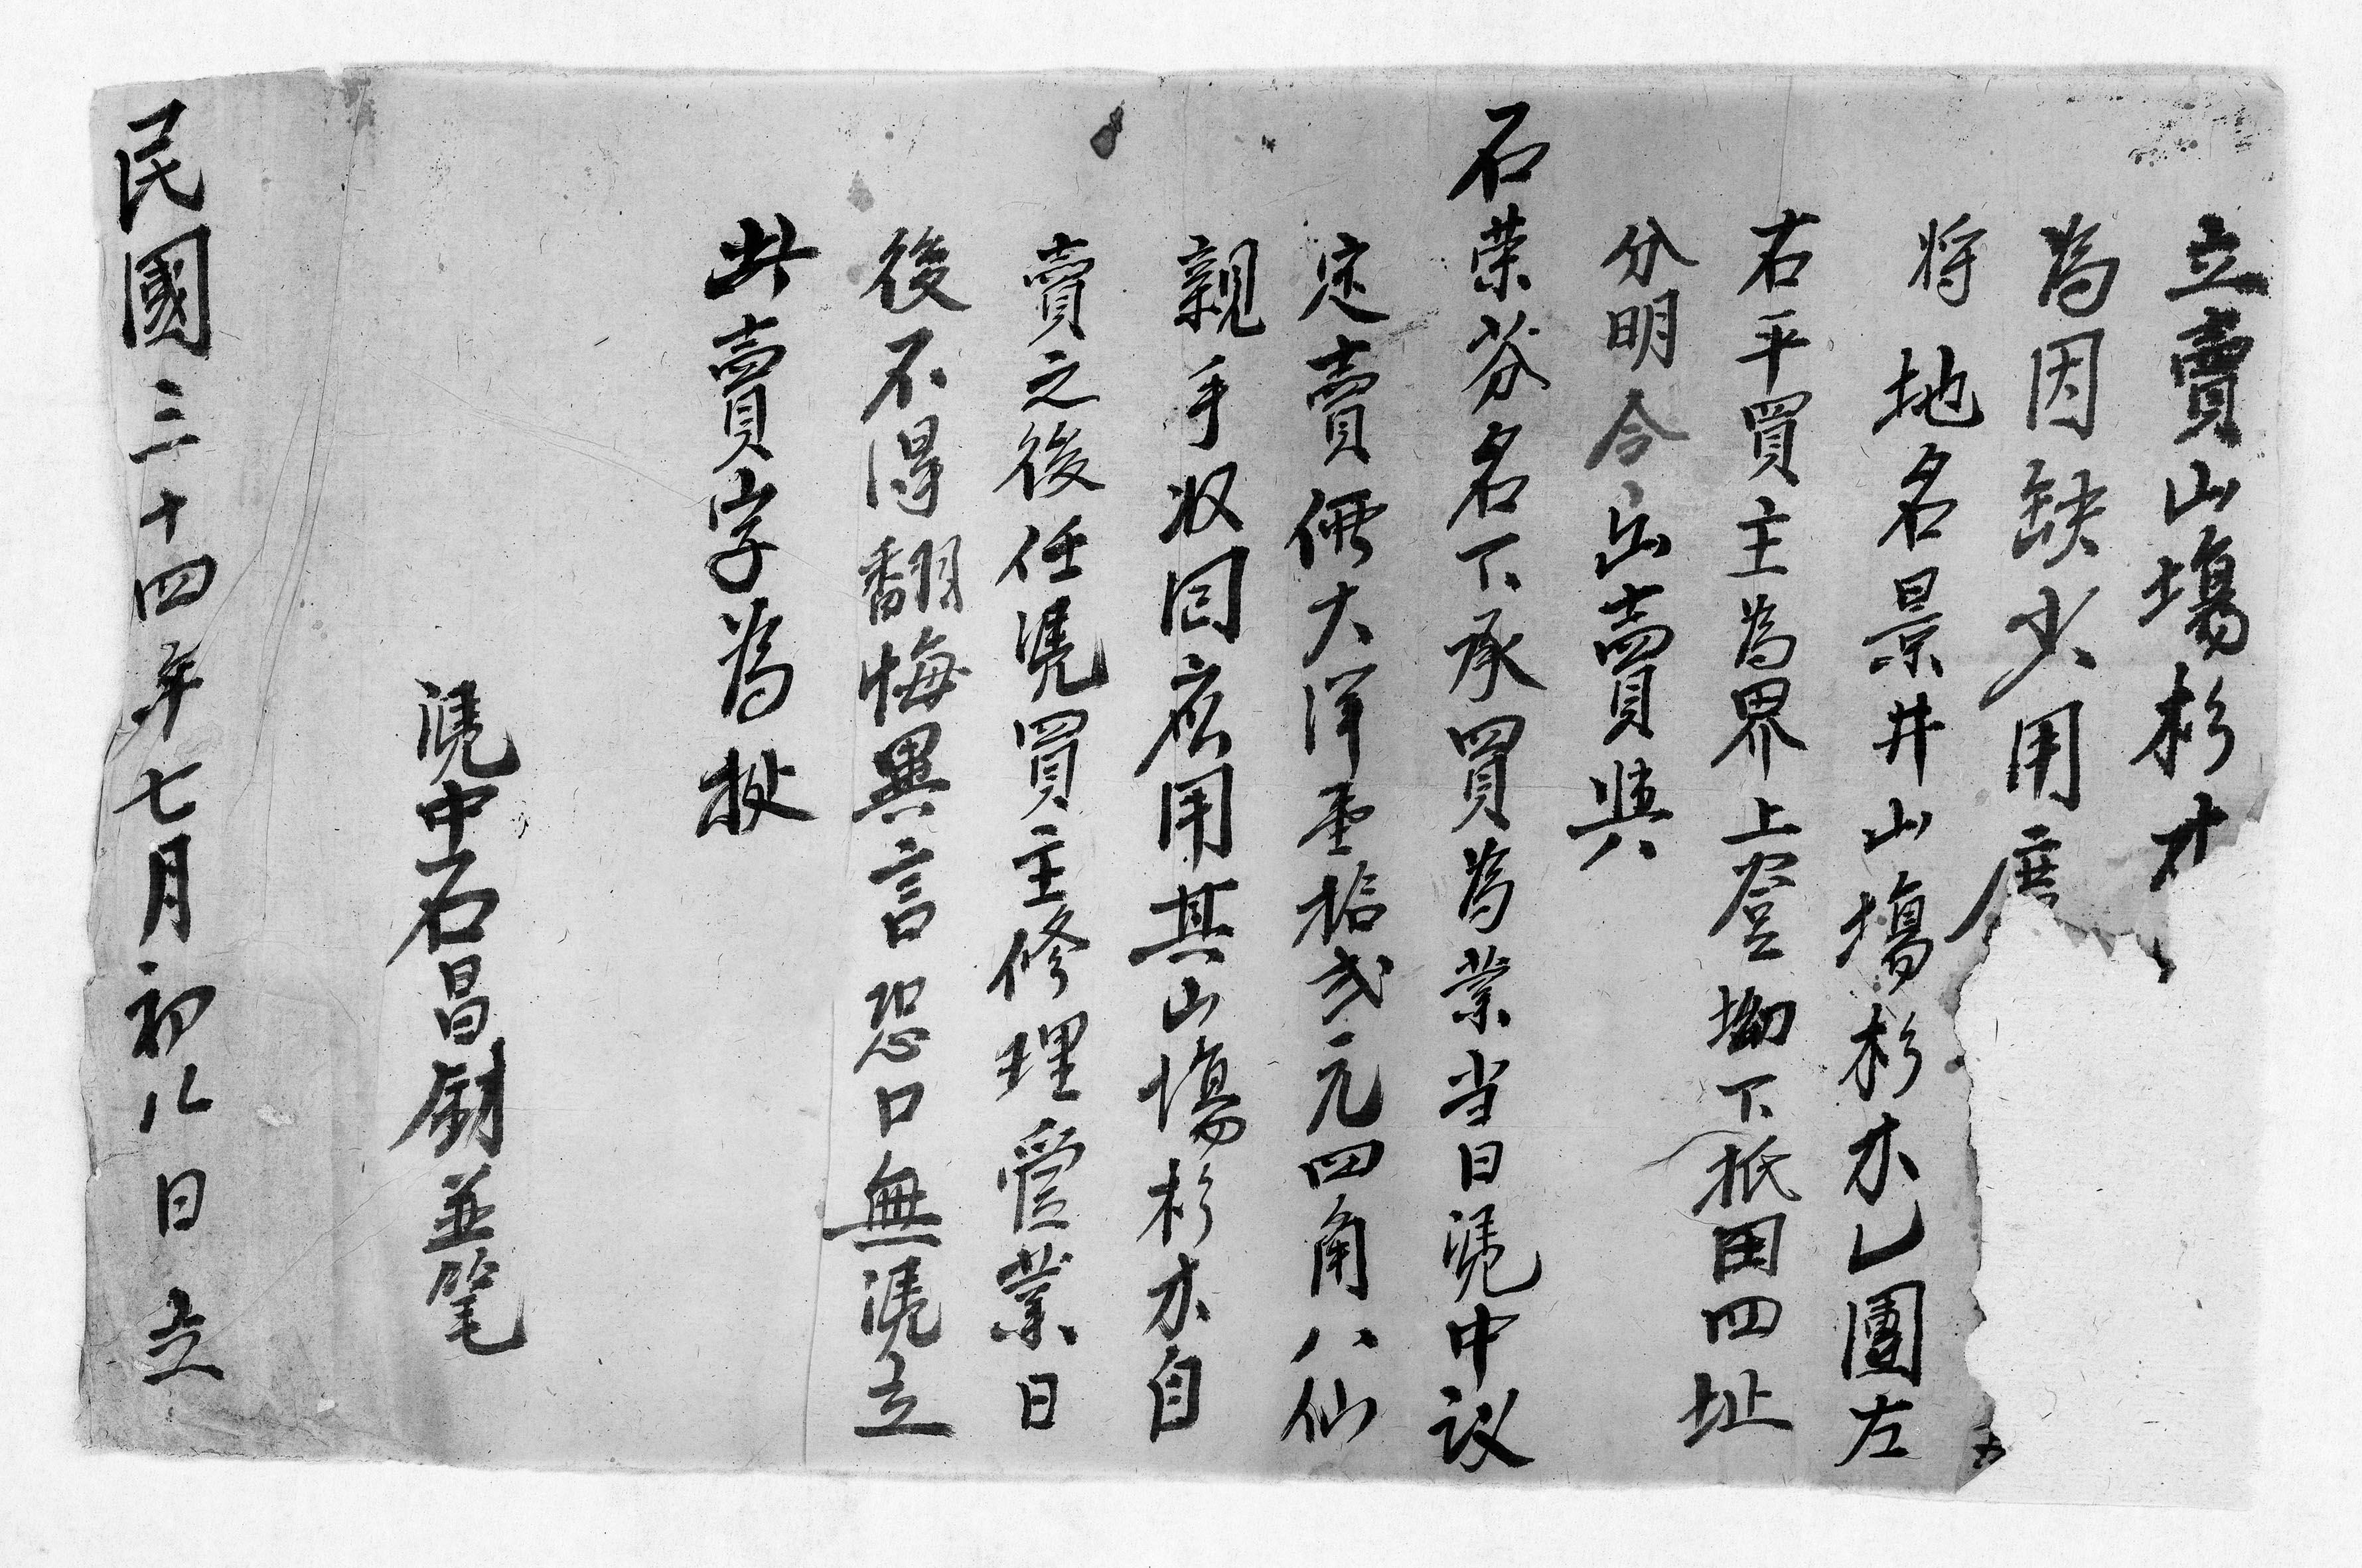 立賣山塲杉木
為因缺少用度
将地名景井山塲杉木乙團左
右平買主為界上登坳下抵田四址
分明今出賣與
石荣芬名下承買為業当日凴中议
定賣價大洋壹拾弍元四角八仙
親手收回应用其山塲杉木自
賣之後任凴買主修理管業日
後不得翻悔異言恐口無凴立
此賣字為據
凴中石昌釗並笔
民國三十四年七月初八日立